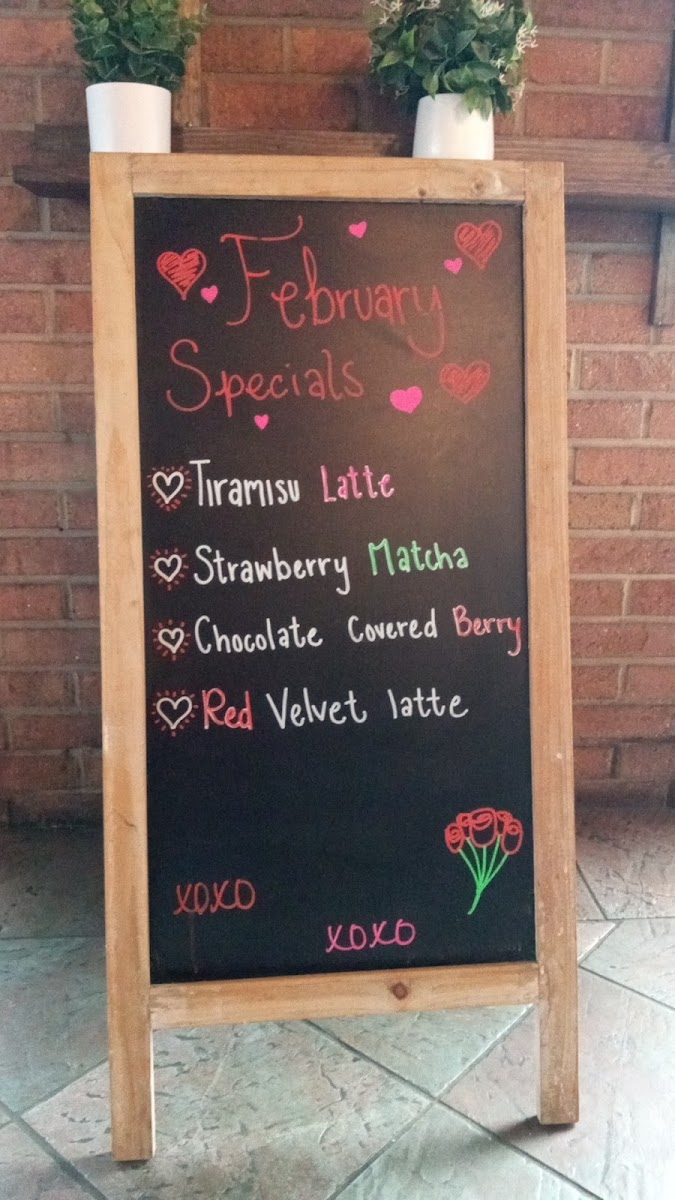 February
Specials
Tiramisu Latte
Strawberry Matcha
Chocolate Covered Berry
Red Velvet latte
XOXO
XOXO